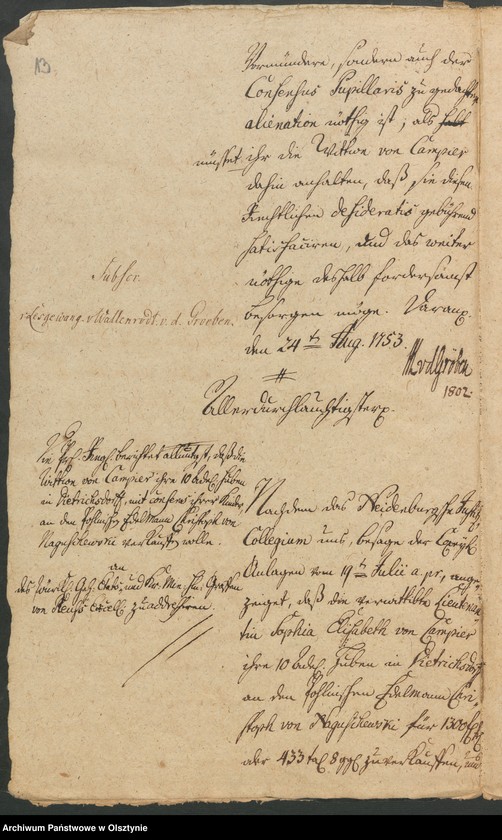 13
Vormündere, sondern auch der
Consensus Pupillaris zu gedachter
alienation nöthig ist; als
müsset ihr die Wittwe von Campier
dahin anhalten, daß sie diesen
Rechtlichen desideratis gebührend
satisfaciren, und das weiter
nöthige deshalb fordersamst
besorgen möge. Daran
den 24 ten Aug. 1753.
MvdGröben
1802.
Subscr.
v Lesgewang. v Wallenrodt. v. d. Groeben.
Allerdurchlauchtigster
Die Pr. Reg. berichtet allerunthgst, daß die
Wittwe von Campier ihre 10 adel. Huben
in Dietrichsdorff, mit consens ihrer Kinder,
an den Pohlnischen Edelmann Christoph von
Naguschewski verkauffen wolle.
an
des Würkl. Geh. Etats- und Kr. Min. Hn. Graffen
von Reuss Excell. zu addressiren.
Nachdem das Neidenburgsche Justitz
Collegium uns, besage der Copeyl.
Anlagen vom 19 ten Julii a. pr., ange-
zeiget, daß die verwittibte Lieutenan-
tin Sophia Elisabeth von Campier
ihre 10 adel. Huben in Dietrichsdorff
an den Pohlnischen Edelmann Chri-
stoph von Naguschewski für 1300
oder 433 tal. 8 ggl. zu verkauffen, und
Archiwum Państwowe w Olsztynie